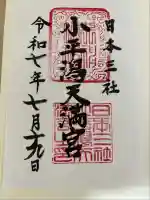 日本三社
小平潟天満宮
令和七年七月十九日
日本三社